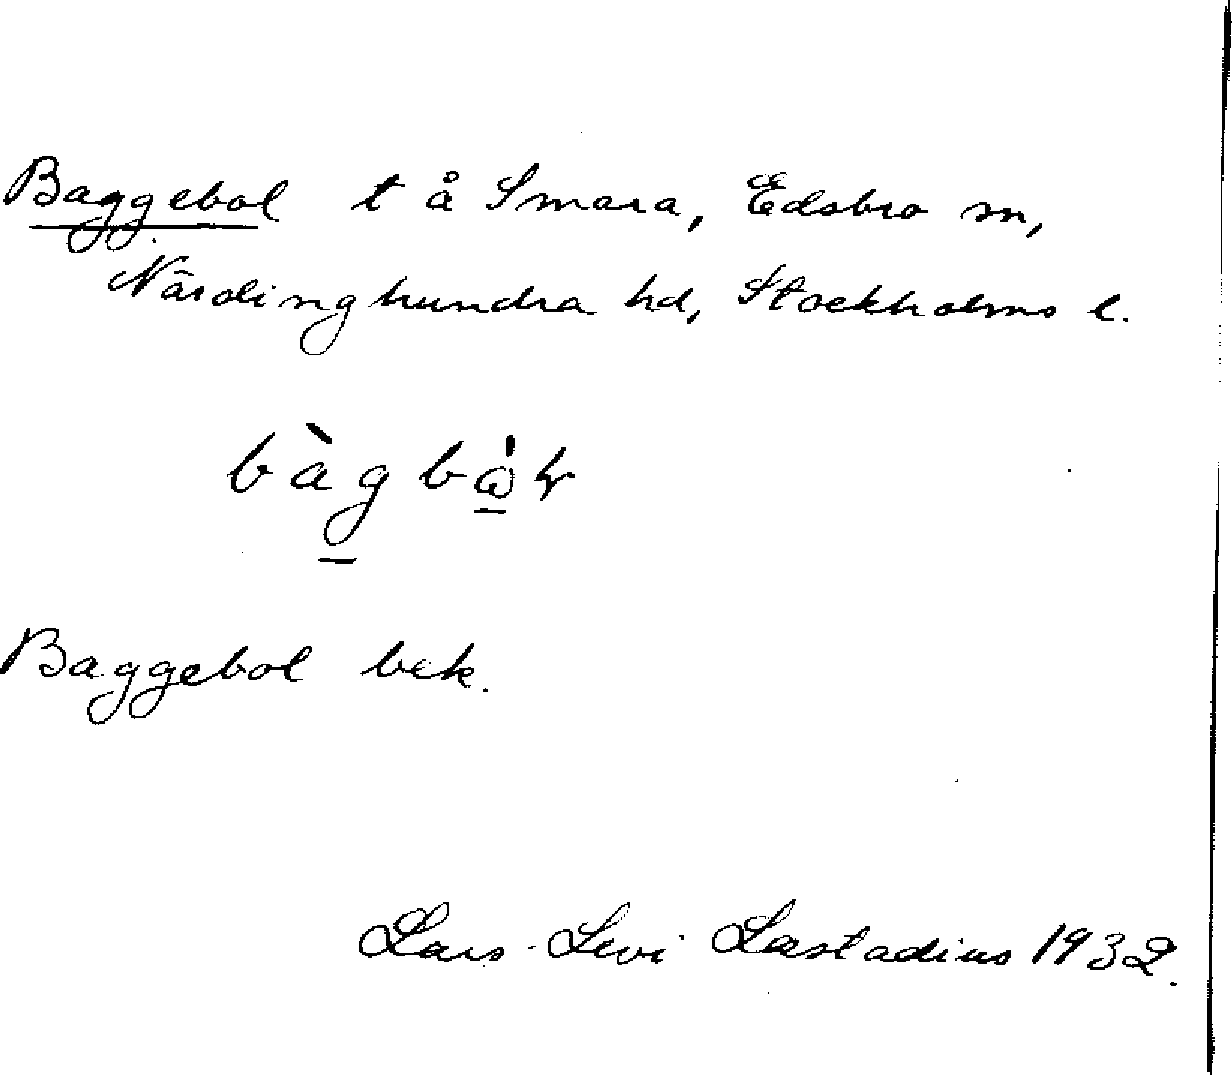 Baggebol t å Smara, Edsbro sn,
Närdinghundra hd, Stockholms l.
Baggebol bek.
Lars-Levi Læstadius 1932.